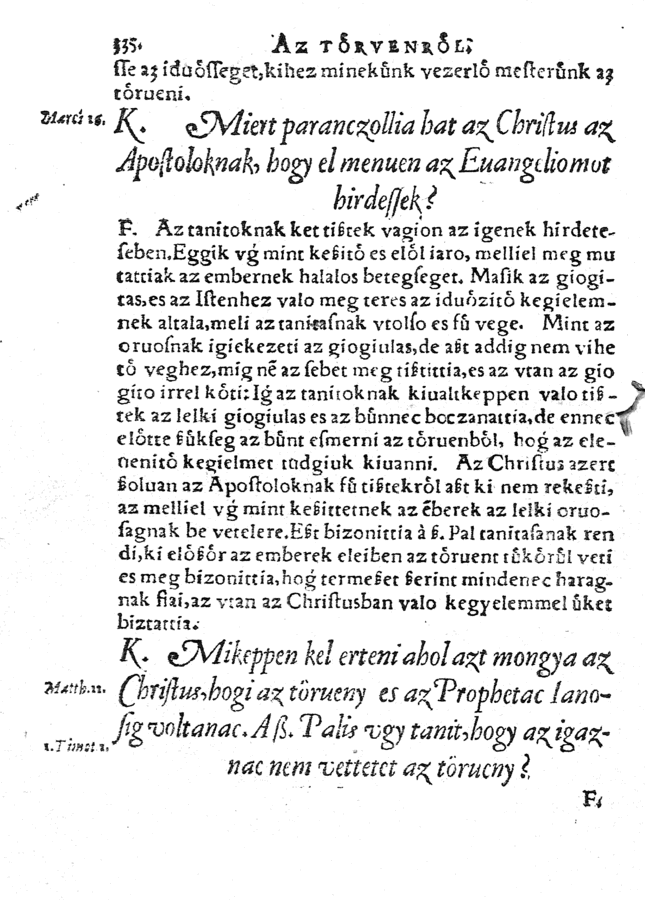 335. AZ TŐRVENRŐL;
ſſe aʒ iduőſſeget,kihez minekűnk vezerlő meſterűnk aʒ
tőrueni.
Marci 16. K. Miert paranczollia hat az Chriſtus az
Apoſtoloknak, hogy el menuen az Euangeliomot
hirdeſſek?
F. Az tanitoknak ket tißtek vagion az igenek hirdete-
ſeben.Eggik vǵ mint keßitő es elől iaro, melliel meg mu
tattiak az embernek halalos betegſeget. Maſik az giogi-
tas,es az Iſtenhez valo meg teres az iduőzitő kegielem-
nek altala,meli az tanitaſnak vtolſo es fű vege. Mint az
oruoſnak igiekezeti az giogiulas,de aßt addig nem vihe
tő veghez,mig nē az ſebet meg tißtittia,es az vtan az gio
gito irrel kőti: Iǵ az tanitoknak kiualtkeppen valo tiß-
tek az lelki giogiulas es az bűnnec boczanattia,de ennec
előtte ßűkſeg az bűnt eſmerni az tőruenből, hoǵ az ele-
uenitő kegielmet tudgiuk kiuanni. Az Chriſtus azert
ßoluan az Apoſtoloknak fű tißtekről aßt ki nem rekeßti,
az melliel vǵ mint keßittetnek az ēberek az lelki oruo-
ſagnak be vetelere.Eßt bizonittia à ß. Pal tanitaſanak ren
di,ki előßőr az emberek eleiben az tőruent tűkőrűl veti
es meg bizonittia,hoǵ termeßet ßerint mindenec harag-
nak fiai,az vtan az Chriſtusban valo kegyelemmel űket
biztattia.
K. Mikeppen kel erteni ahol azt mongya az
Matth.11. Chriſtus,hogi az törueny es az Prophetac Iano-
ſig voltanac. A ß. Palis vgy tanit,hogy az igaz-
1.Timot 1. nac nem vettetet az törueny?
F.